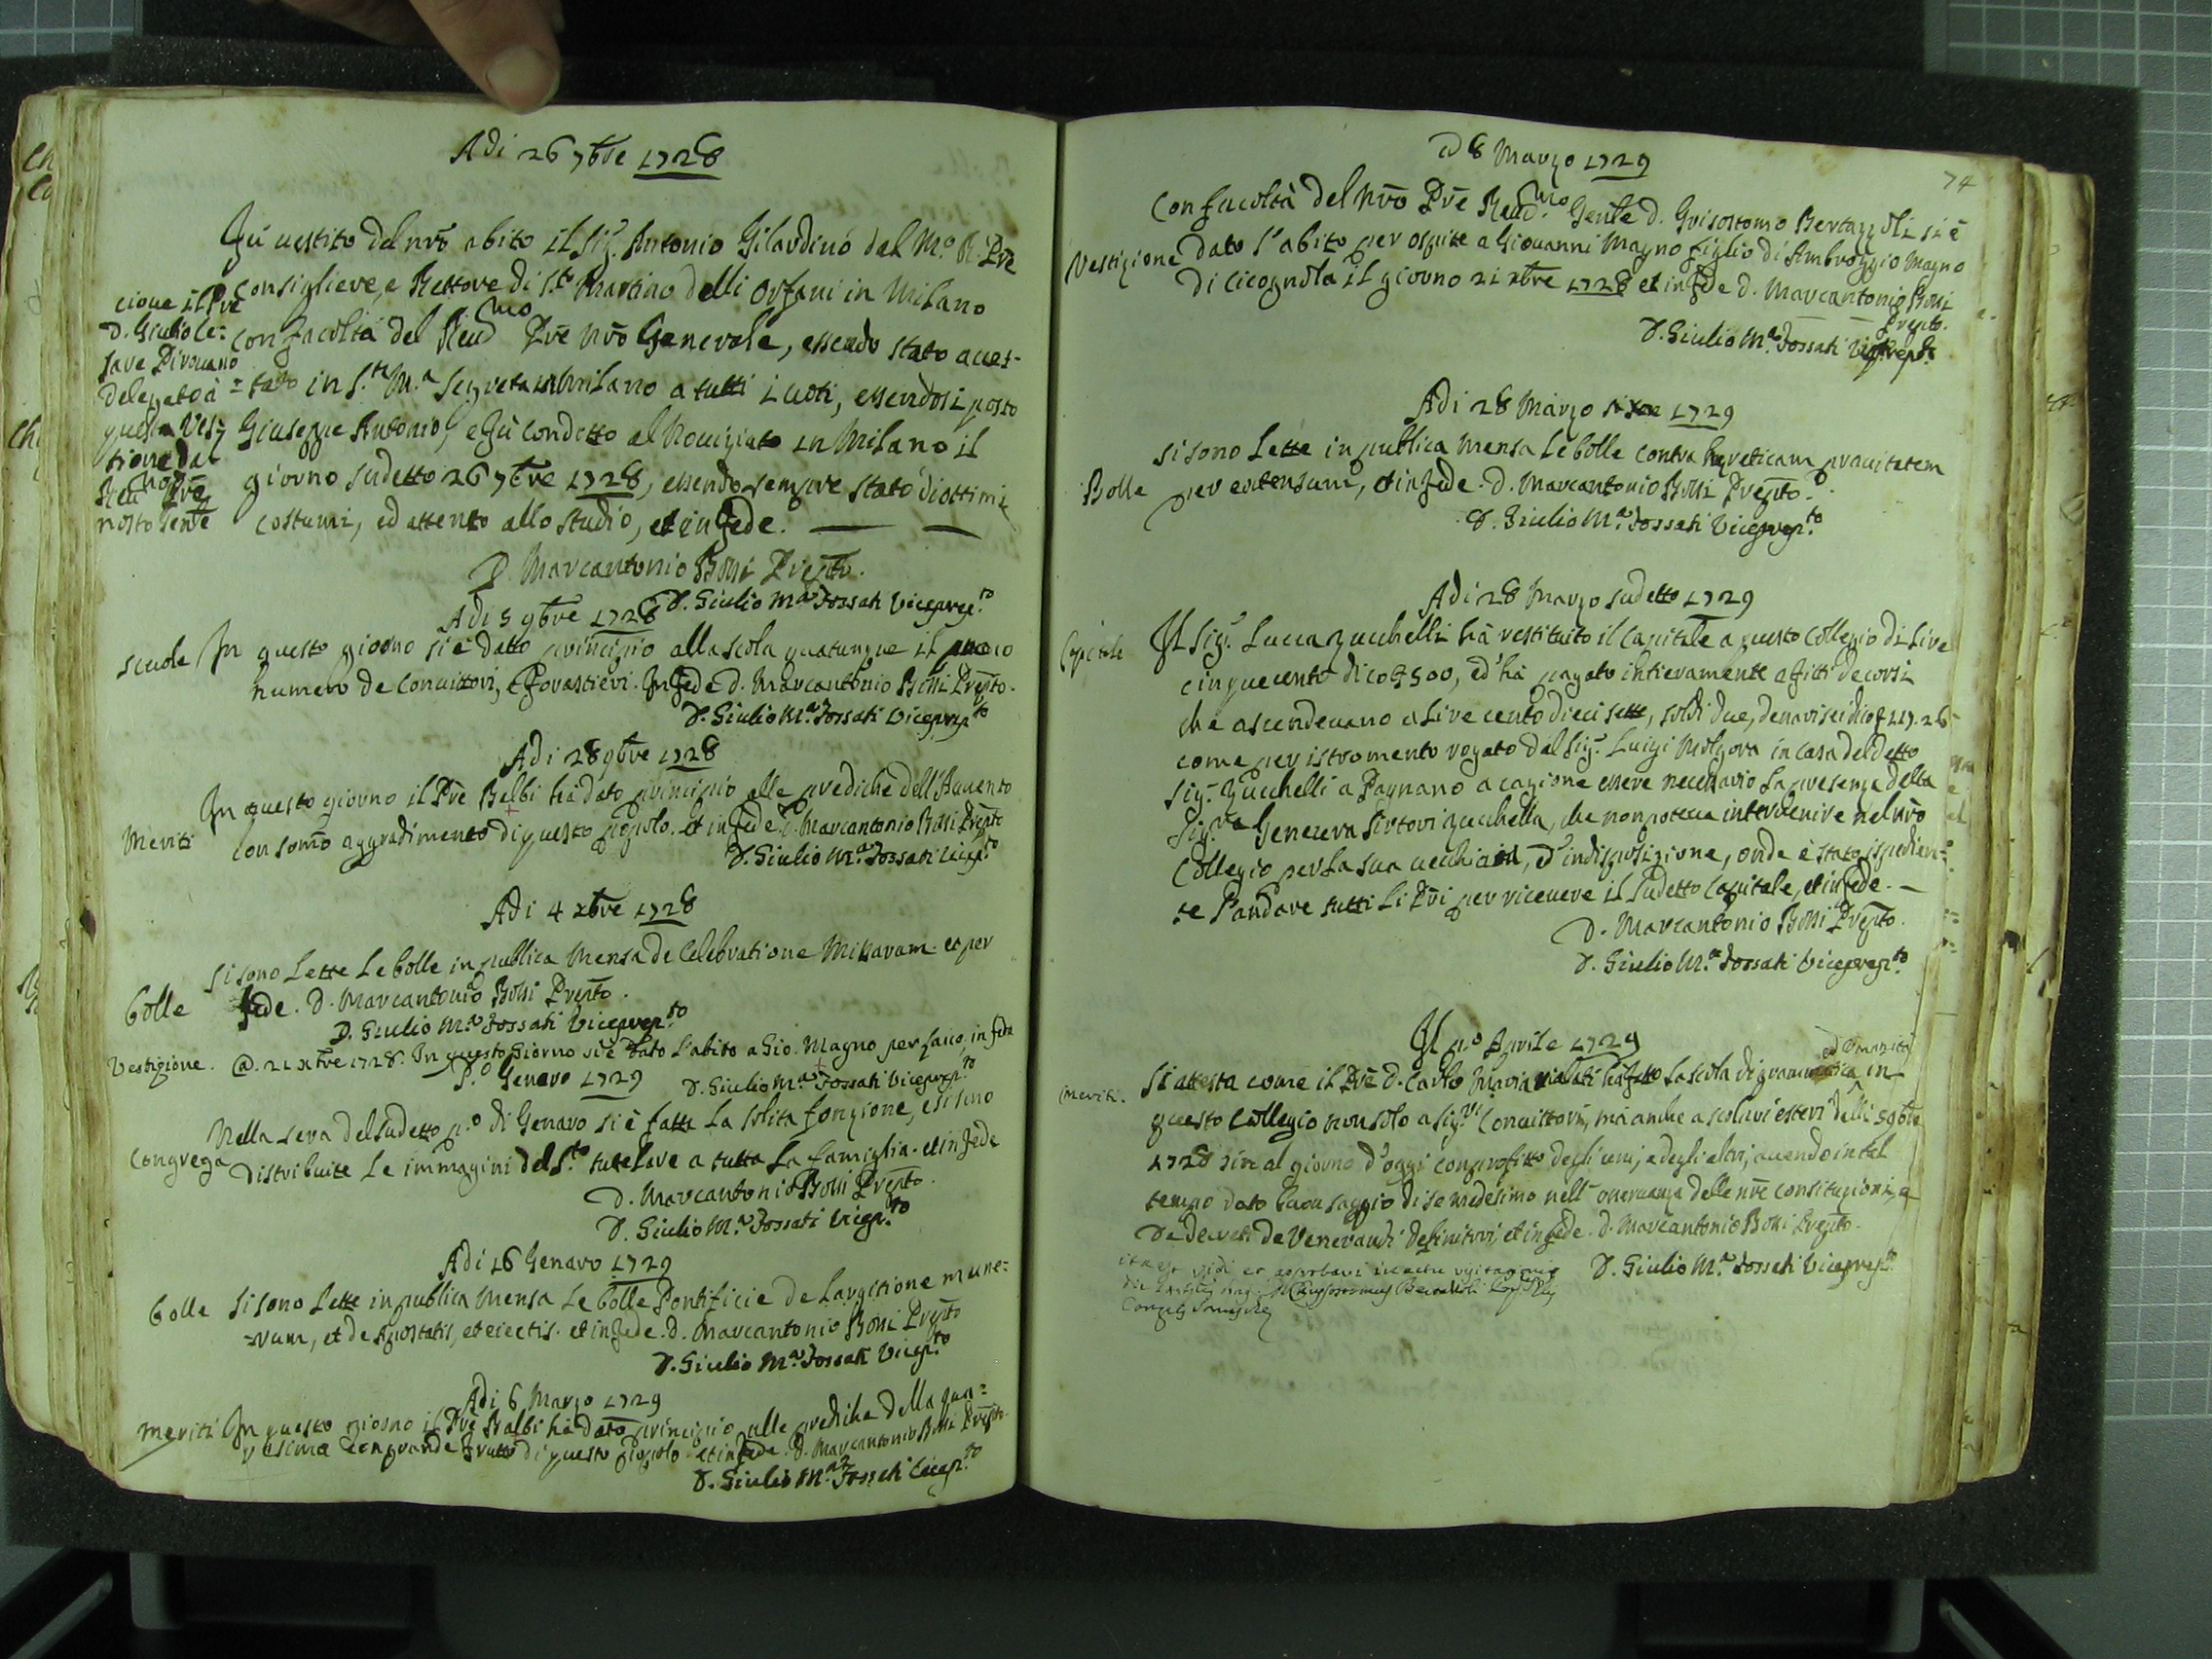 Adi 26 7bre 1728
Fù vestito del nrō abito il Sig.r Antonio Gilardino dal M.o R. Pre
Consigliere, e Rettore di S.to Martino delli Orfani in Milano
con facoltà del Reud.mo Prē nrō Generale, essendo stato acces-
=tato in S.ta M.a Segreta in Milano a tutti i uoti, essendosi posto
Giuseppe Antonio, e fù condotto al Nouiziato in Milano il
giorno sudetto 26 7bre 1728, essendo sempre stato di ottimi
costumi, ed attento allo studio, et in fede.
cioue il Pre
D. Giulio Ce=
sare Pirouano
delegato à
questa Ves=
tione dal
Reu.mo Prē
nosto Genle
D. Marcantonio Rossi Prepto.
D. Giulio M.a Fossati Viceprep.to
Adi 5 9bre 1728
scuole In questo giorno si è datto principio alla scola quatunque il
numero de Conuittori, e Forastieri. In fede D. Marcantonio Rossi Prepto.
D. Giulio M.a Fossati Viceprep.to
Adi 28 9bre 1728
In questo giorno il Prē Balbi hà dato principio alle prediche dell'Auuento
Meriti con somō aggradimento di questo popolo. et in fede. D. Marcantonio Rossi Prepto
D. Giulio M.a Fossati Vicep.to
Adi 4 xbre 1728
Si sono Lette Le bolle in publica Mensa de Celebratione Missarum. et per
bolle fede. D. Marcantonio Rossi Prepto.
D. Giulio M.a Fossati Viceprep.to
Vestizione. @. 21 xbre 1728. In questo Giorno si è dato l'abito a Gio. Magno per Laico, in fede
P.o Genaro 1729 D. Giulio M.a Fossati Viceprep.to
Nella sera del sudetto p.o di Genaro si è fatta La solita fonzione, e si sono
Congrega Distribuite Le immagini del S.to tutelare a tutta La famiglia. et in fede
D. Marcantonio Rossi Prepto.
D. Giulio M.a Fossati Vicepr.to
Adi 16 Genaro 1729
bolle Si sono Lette in publica Mensa Le bolle Pontificie de Largitione mune=
=rum, et de Apostatis, et eiectis. et in fede. D. Marcantonio Rossi Prepto
D. Giulio M.a Fossati Vicep.to
Adi 6 Marzo 1729
meriti In questo giorno il Prē Balbi hà dato principio alle prediche della qua=
resima con grande frutto di questo popolo et in fede. D. Marcantonio Rossi Prepto.
D. Giulio M.a Fossati Vicep.to
74
@ 8 Marzo 1729
Con facoltà del Nrō Prē Reud.mo Genle D. Grisostomo Bertazzoli si è
Vestizione dato l'abito per ospite a Giouanni Magno figlio di Ambroggio Magno
di Cicognola il giorno 21 xbre 1728 et in fede D. Marcantonio Rossi
Prepto.
D. Giulio M.a Fossati Viceprep.to
Adi 28 Marzo 1729
Si sono Lette in publica Mensa Le bolle contra haereticam prauitatem
Bolle per extensum, et in fede. D. Marcantonio Rossi Prepto.
D. Giulio M.a Fossati Viceprep.to
Adi 28 Marzo sudetto 1729
Capitale Il Sig.r Lucca Zucchelli hà restituito il Capitale a questo Collegio di Lire
cinquecento dico £ 500, ed hà pagato intieramente a fitti decorsi
che ascendeuano a Lire cento dieci sette, soldi due, denari sei dico £ 117. 2 6
come per istromento rogato dal Sig.r Luigi Molgora in casa del detto
Sig.r Zucchelli a Pagnano a cagione essere necessario La presenza della
Sig.ra Geneura Sirtori Zucchella, che non poteua interuenire nel nrō
Collegio per La sua uecchiaia, ed indisposizione, onde è stato ispedien=
te l'andare tutti Li Pri per riceuere il sudetto Capitale, et in fede.
D. Marcantonio Rossi Prepto.
D. Giulio M.a Fossati Viceprep.to
Il p.o Aprile 1729
ed Umanità
Meriti. Si attesta come il Prē D. Carlo Maria hà fatto La scola di grammatica in
questo Collegio non solo a Sig.ri Conuittori, mà anche a scolari esteri delli 5 9bre
1728 sin al giorno d'oggi con profitto degli uni, e degli altri, auendo in tal
tempo dato buon saggio di se medesimo nell'osseruanza delle nre constituzioni, e
de decreti de Venerandi Definitori, et in fede. D. Marcantonio Rossi Prepto.
D. Giulio M.a Fossati Viceprep.to
ita est vidi et approbavi in actu visitationis